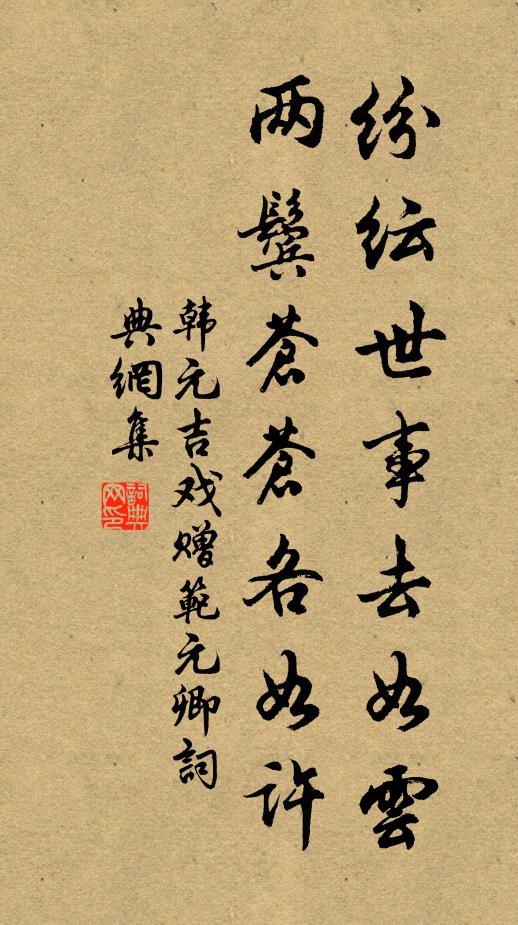 纷纭世事去如雲
两鬓苍苍各如许
韩元吉戏赠範元卿詞
典網集
詞典
网印